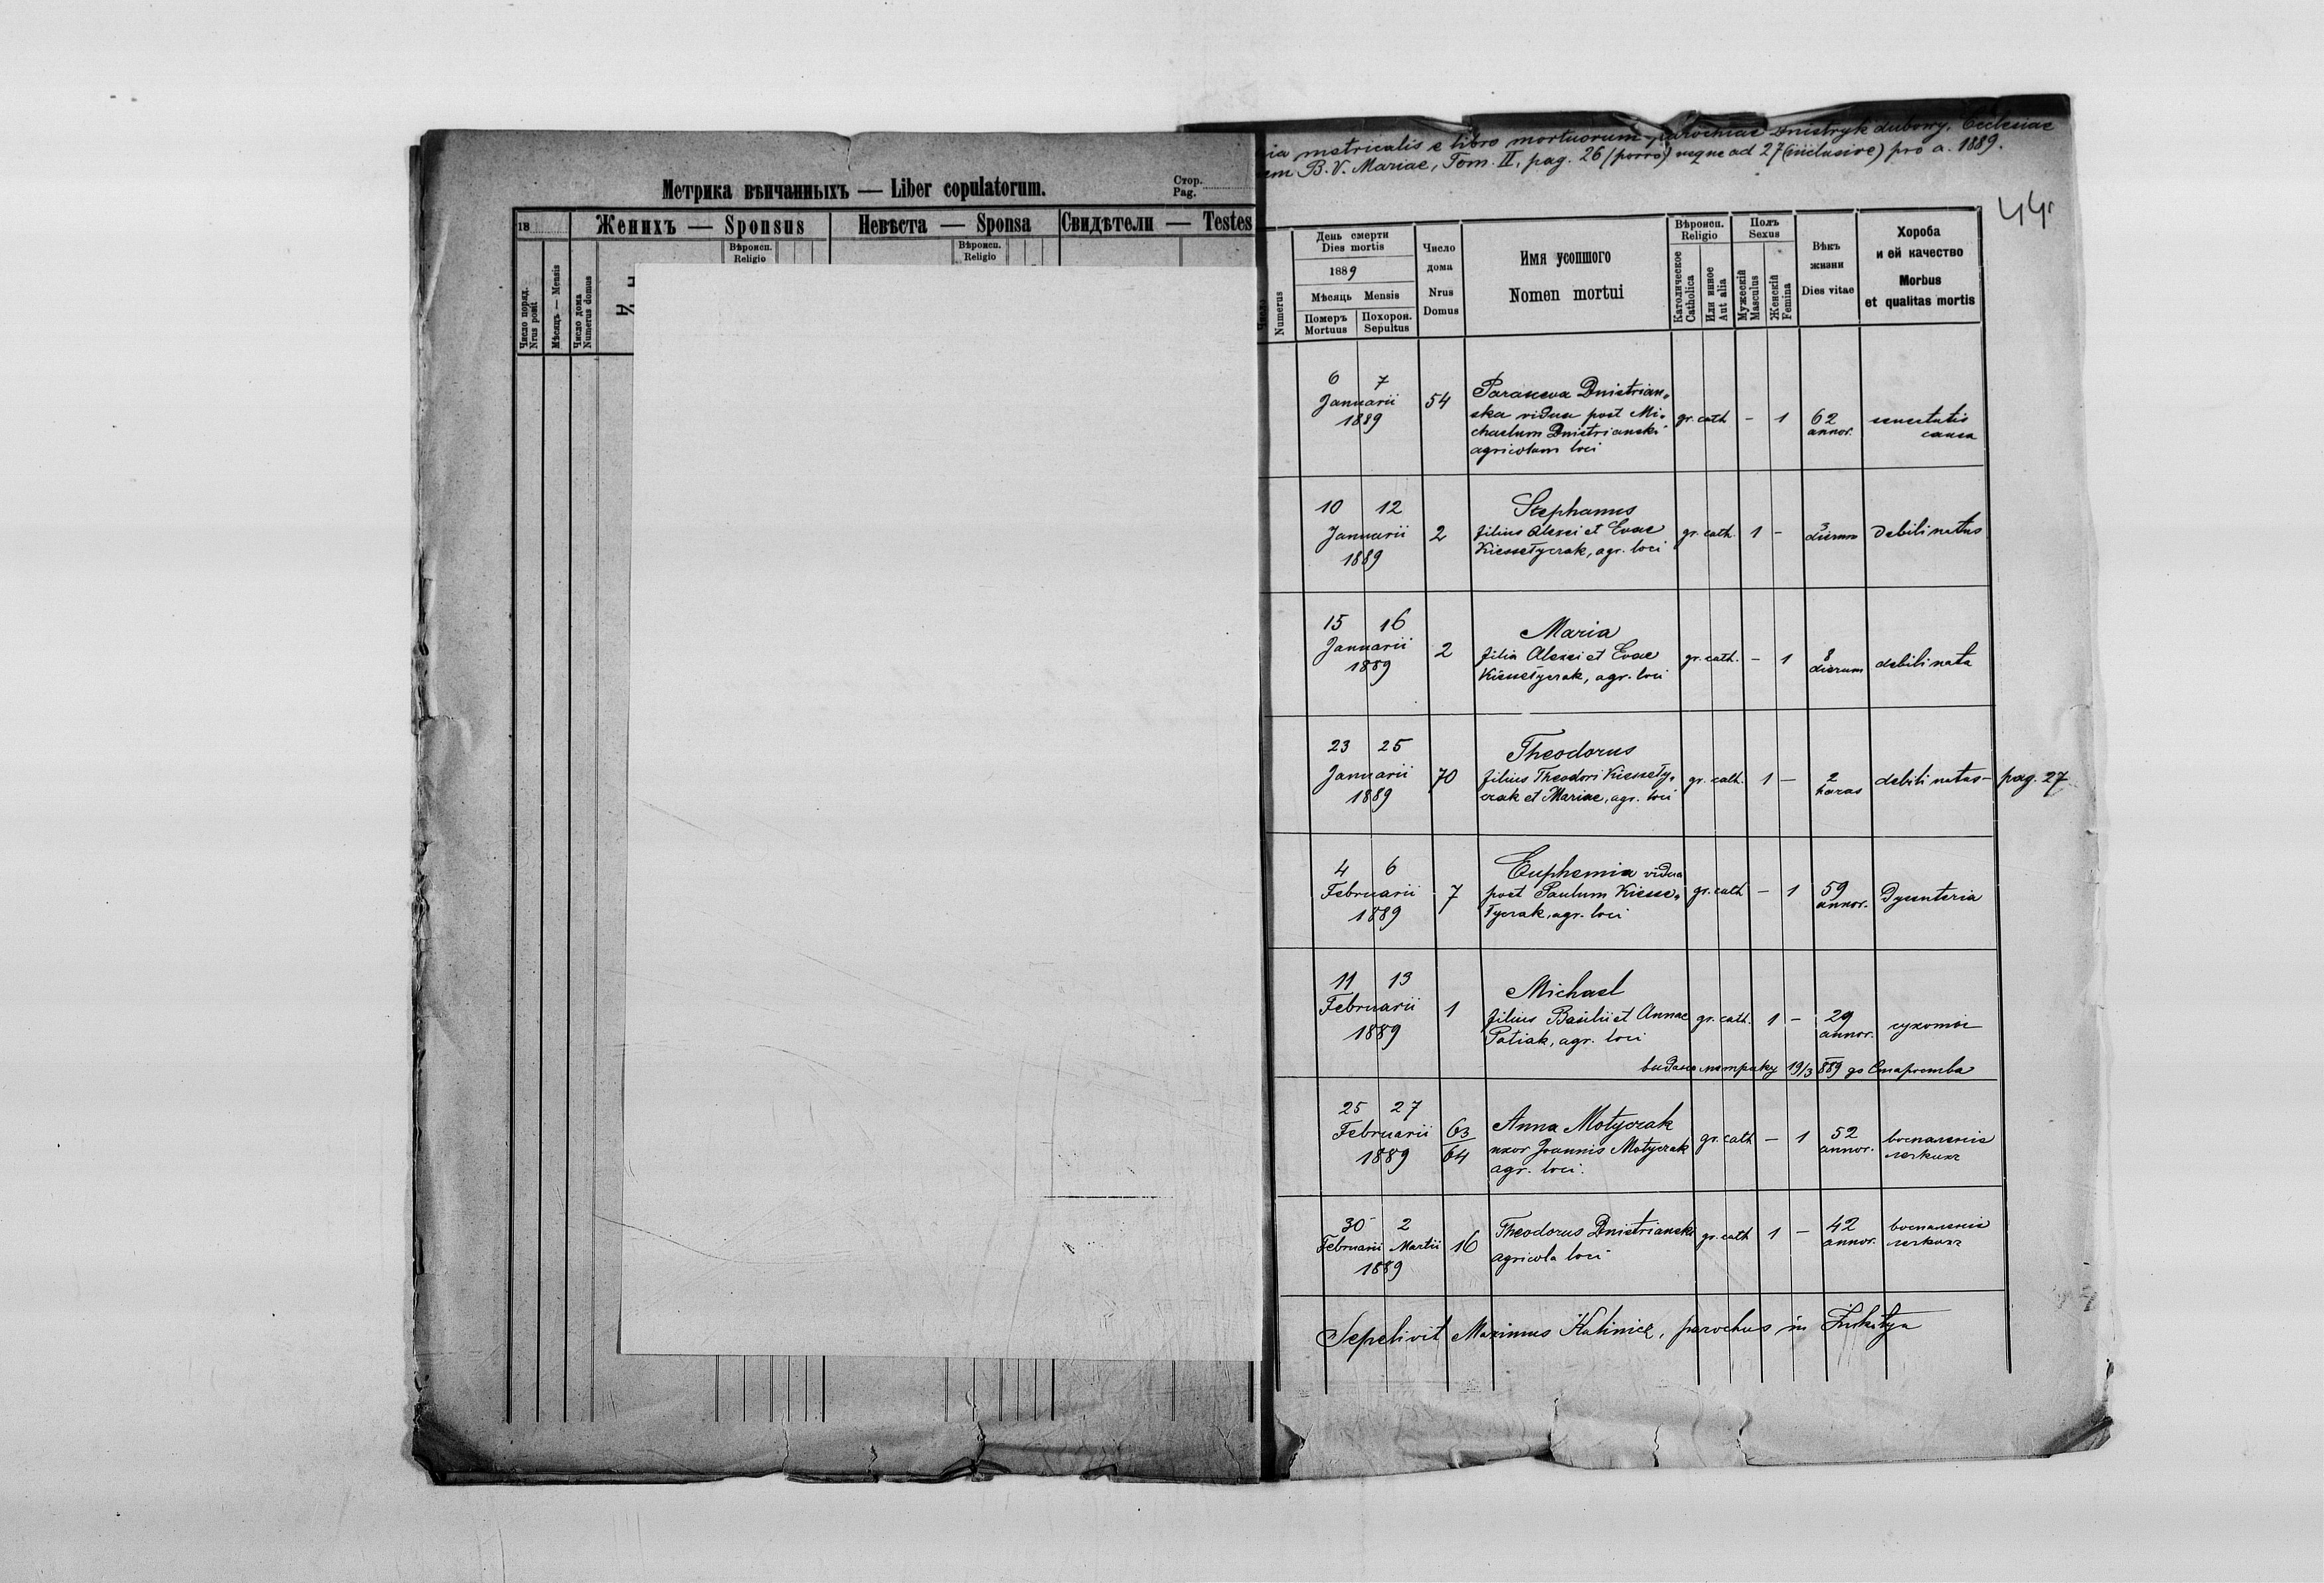 Метрика вѣнчанныхъ — Liber copulatorum.
Стор.
Pag.
18
Женихъ — Sponsus
Невѣста — Sponsa
Свидѣтели — Testes
Вѣроисп.
Religio
Вѣроисп.
Religio
Число поряд.
Nrus posit
Мѣсяць — Mensis
Число дома
Numerus domus
metricalis e libro mortuorum, parochiae Dnistryk dubowy, Ecclesiae
B. V. Mariae, Tom. II, pag. 26 (porro) usque ad 27 (inclusive) pro a. 1889.
44
Numerus
День смерти
Dies mortis
1889
Мѣсяць Mensis
Померъ
Mortuus
Похорон.
Sepultus
Число
дома
Nrus
Domus
Имя усопшого
Nomen mortui
Вѣроисп.
Religio
Католическое
Catholica
Или инное
Aut alia
Полъ
Sexus
Мужескій
Masculus
Женскій
Femina
Вѣкъ
жизни
Dies vitae
Хороба
и ей качество
Morbus
et qualitas mortis
6 7
Januarii
1889
54
Parasceva Dnistrian„
ska vidua post Mi„
chaelum Dnistrianski
agricolam loci
gr. cath - 1
62
annor.
senectutis
causa
10 12
Januarii
1889
2
Stephanus
filius Alexei et Evae
Kiessełyczak, agr. loci
gr. cath. 1 -
3
dierum
debili natus
15 16
Januarii
1889
2
Maria
filia Alexei et Evae
Kiessełyczak, agr. loci
gr. cath. - 1
8
dierum
debili nata
23 25
Januarii
1889
70
Theodorus
filius Theodori Kiesseły„
czak et Mariae, agr. loci
gr. cath. 1 -
2
horas
debili natus - pag. 27
4 6
Februarii
1889
7
Euphemia vidua
post Paulum Kiesse„
łyczak, agr. loci
gr. cath - 1
59
annor.
Dysenteria
11 13
Februarii
1889
1
Michael
filius Basilii et Annae
Patiak, agr. loci
gr. cath. 1 -
29
annor.
сухоты
видано метрику 19/3 889 до Староства
25 27
Februarii
1889
63
64
Anna Motyczak
uxor Joannis Motyczak
agr. loci.
gr. cath - 1
52
annor.
воспаленіе
легкихъ
30 2
Februarii Martii
1889
16
Theodorus Dnistrianski
agricola loci
gr. cath 1 -
42
annor.
воспаленіе
легкихъ
Sepelivit Maximus Kalinicz, parochus in